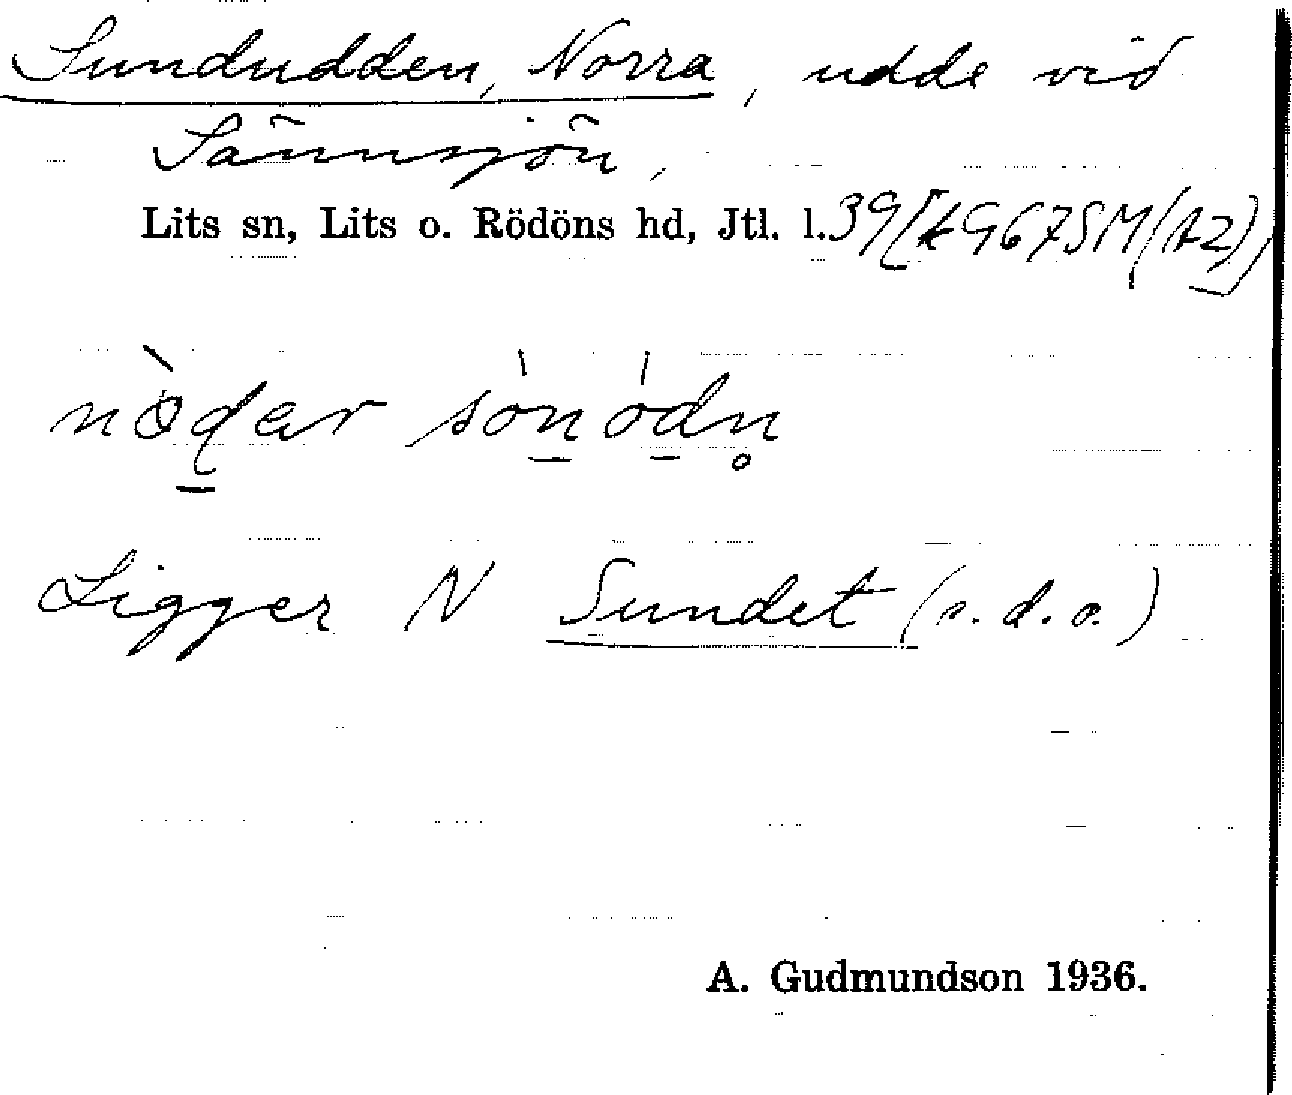 Sundudden, Norra, udde vid
Sännsjön,
Lits sn, Lits o. Rödöns hd, Jtl. l. 39
Ligger N Sundet (s.d.o.)
A. Gudmundson 1936.